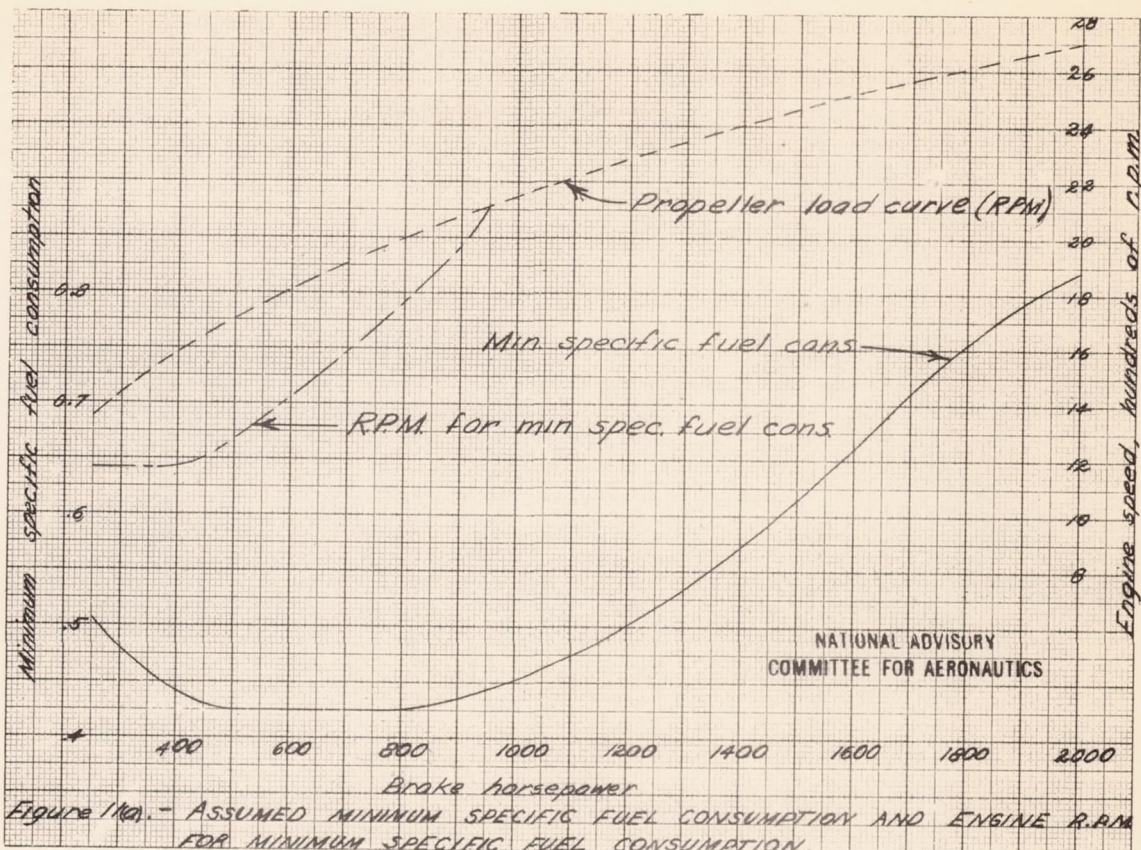 Minimum specific fuel consumption
0.8
0.7
.6
.5
.4
28
26
24
22
20
18
16
14
12
10
8
Engine speed, hundreds of r.p.m.
Propeller load curve (RPM)
Min. specific fuel cons.
R.P.M. for min spec. fuel cons.
NATIONAL ADVISORY
COMMITTEE FOR AERONAUTICS
400 600 800 1000 1200 1400 1600 1800 2000
Brake horsepower
Figure 11(a).- ASSUMED MINIMUM SPECIFIC FUEL CONSUMPTION AND ENGINE R.P.M
FOR MINIMUM SPECIFIC FUEL CONSUMPTION